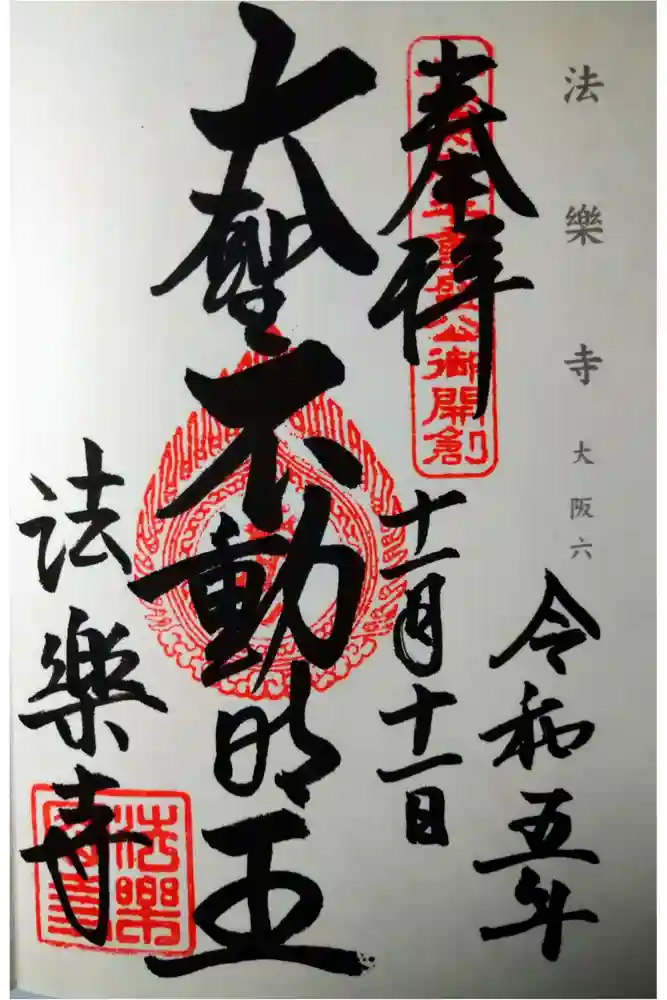 法樂寺 大阪六
奉拝
平重盛公御開創
令和五年
十一月十一日
大聖不動明王
法樂寺
法樂